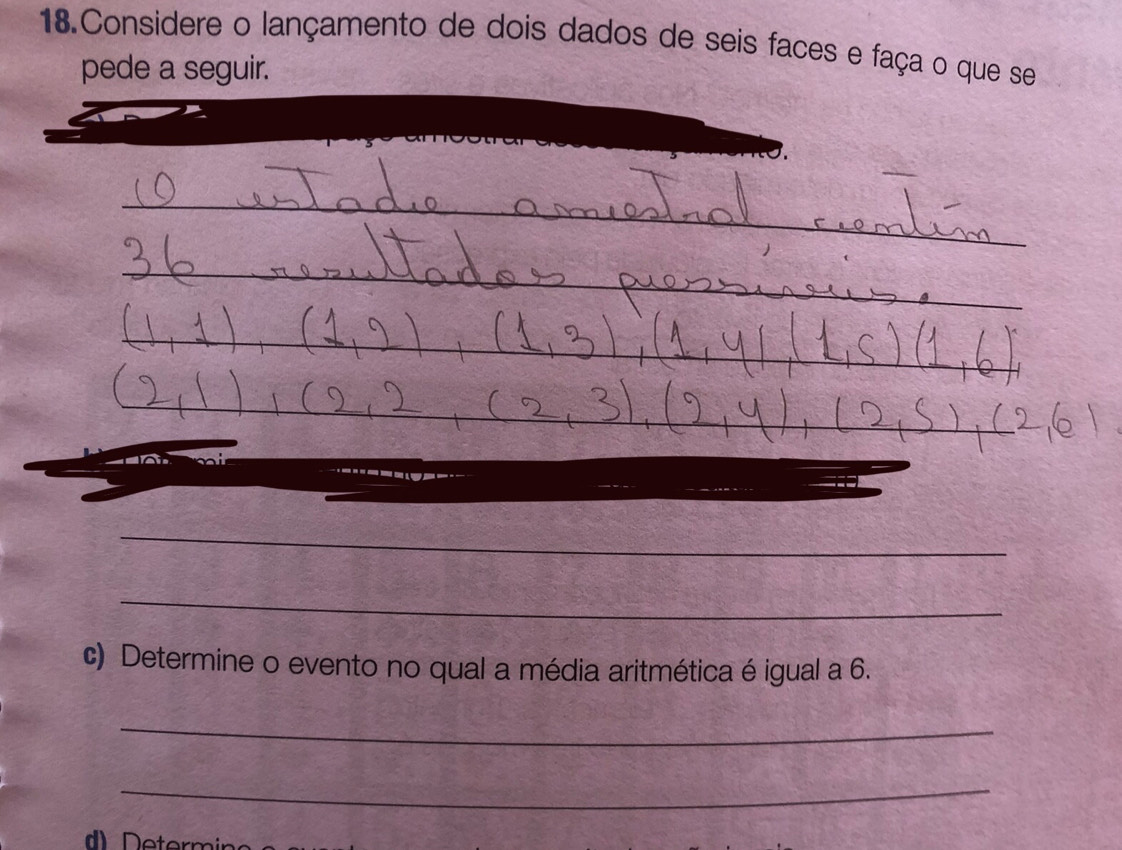 18. Considere o lançamento de dois dados de seis faces e faça o que se
pede a seguir.
O estado amostral contém
36 resultados possíveis.
(1,1), (1,2), (1,3), (1,4), (1,5) (1,6),
(2,1), (2,2, (2,3), (2,4), (2,5), (2,6).
c) Determine o evento no qual a média aritmética é igual a 6.
d) Determine o